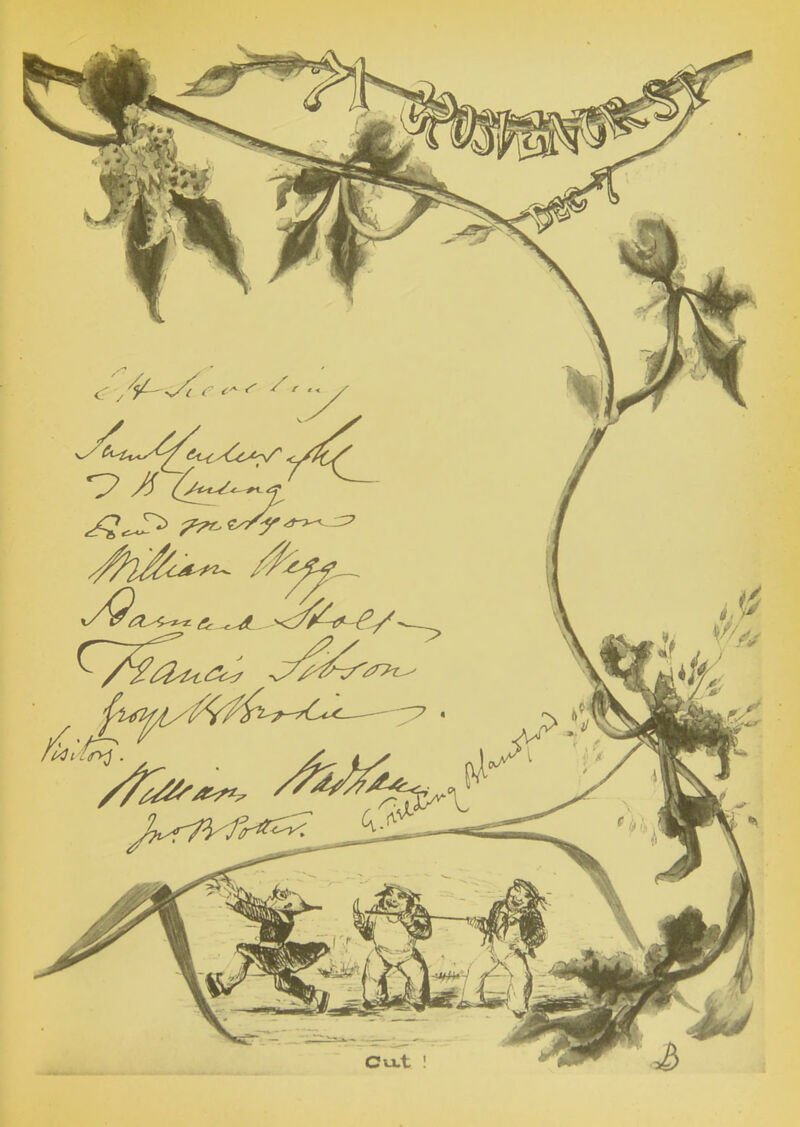 71 GROSVENOR ST
DEC 7
E H Sieveking
Saml Cartwright
T B Curling
Edwd Meryon
William Wegg
Barnard Holt
Francis Sibson
George B Brodie
Visitors.
William Wadham
G. Fielding Blandford
Jno. B Potter.
Cut !
B